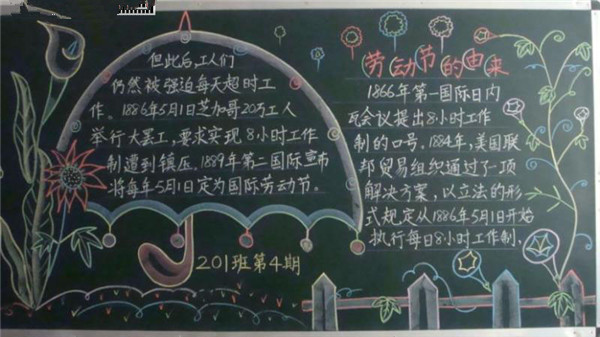 劳动节的由来
1866年第一国际日内
瓦会议提出8小时工作
制的口号。1884年,美国联
邦贸易组织通过了一项
解决方案,以立法的形
式规定从1886年5月1日开始
执行每日8小时工作制.
但此后,工人们
仍然被强迫每天超时工
作。1886年5月1日芝加哥20万工人
举行大罢工,要求实现8小时工作
制遭到镇压。1889年第二国际宣布
将每年5月1日定为国际劳动节。
201班第4期